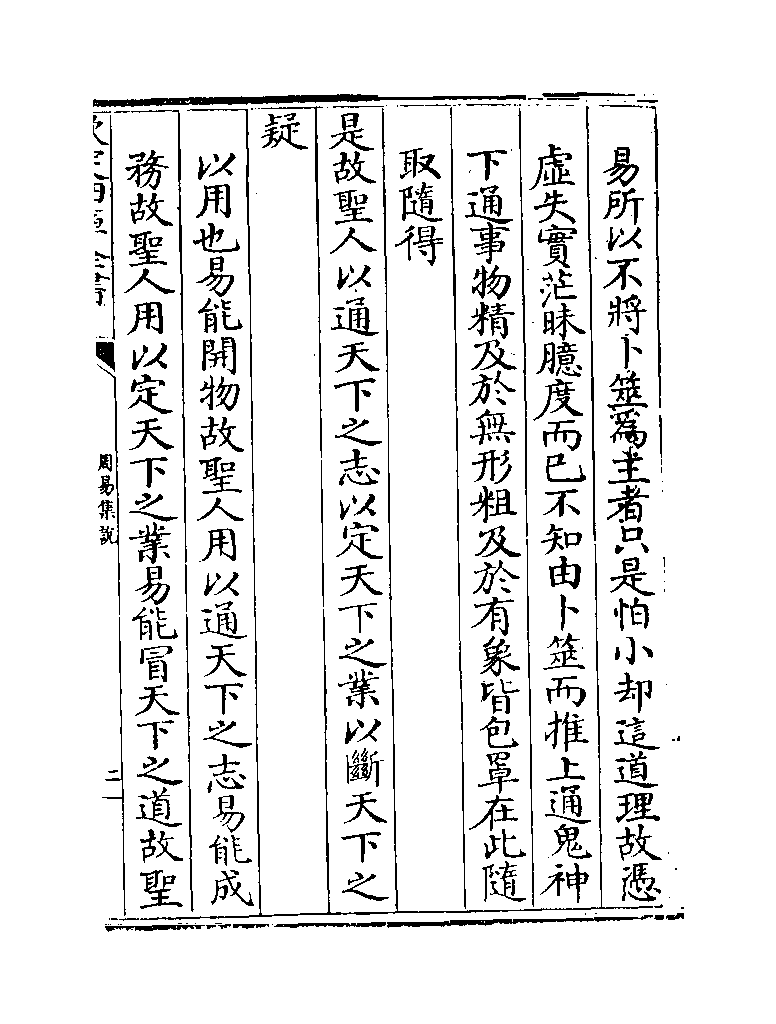 易所以不將卜筮爲主者只是怕小却這道理故憑
虛失實茫昧臆度而已不知由卜筮而推上通鬼神
下通事物精及於無形粗及於有象皆包罩在此隨
取隨得
是故聖人以通天下之志以定天下之業以斷天下之
疑
以用也易能開物故聖人用以通天下之志易能成
務故聖人用以定天下之業易能冒天下之道故聖
欽定四庫全書
周易集說
二